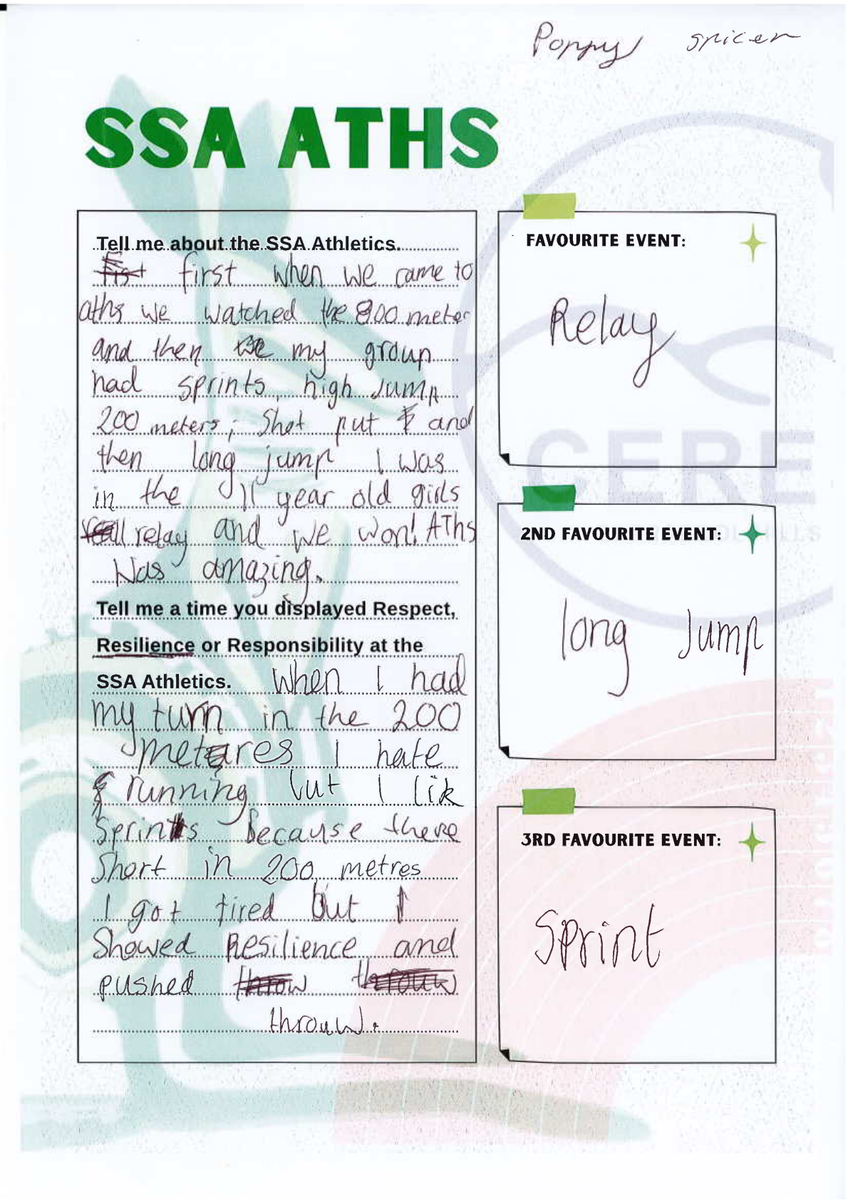 Poppy spicer
SSA ATHS
Tell me about the SSA Athletics.
first when we came to
aths we watched the 800 meter
and then my group
had sprints, high Jump
200 meters, Shot put and
then long jump I was
in the 11 year old girls
relay and we won! ATHs
Was amazing.
Tell me a time you displayed Respect,
Resilience or Responsibility at the
SSA Athletics. When I had
my turn in the 200
metares I hate
running but I lik
Sprints Because there
Short in 200 metres
I got tired but I
Showed Resilience and
pushed
throuw.
FAVOURITE EVENT:
Relay
2ND FAVOURITE EVENT:
long Jump
3RD FAVOURITE EVENT:
Sprint
CERE